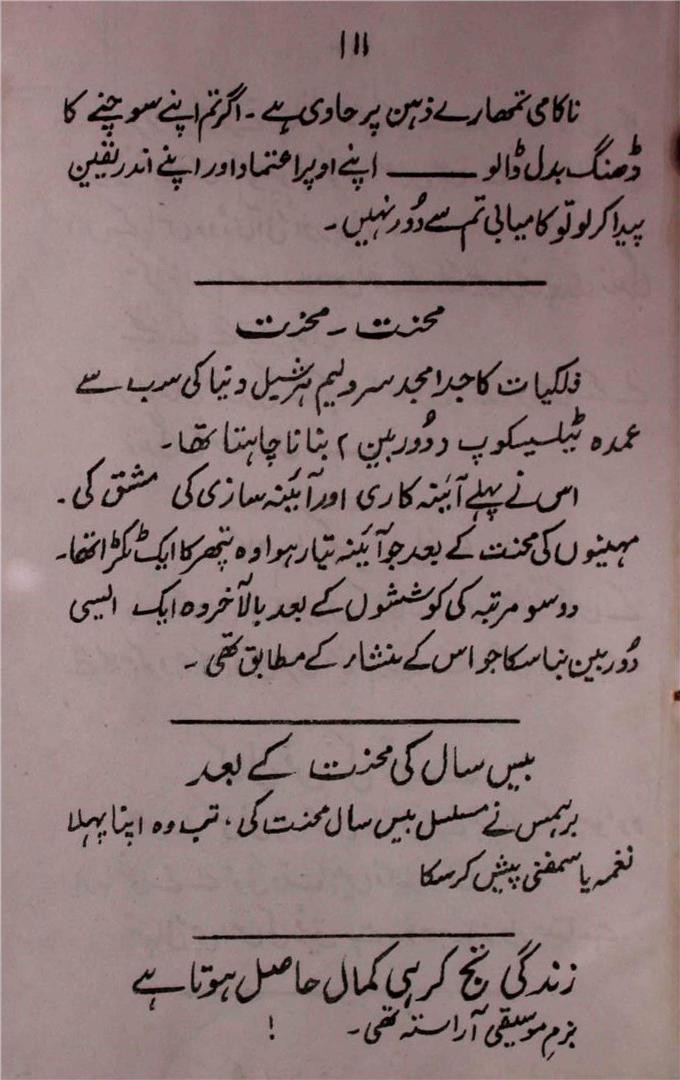 ۱۱۱
ناکامی تمھارے ذہن پر حاوی ہے ۔ اگر تم اپنے سوچنے کا
ڈھنگ بدل ڈالو ــــــــ اپنے اوپر اعتماد اور اپنے اندر یقین
پیدا کر لو تو کامیابی تم سے دُور نہیں ۔
محنت ۔ محنت
فلکیات کا جدا مجد سر ولیم ہرشیل دنیا کی سب سے
عمدہ ٹیلیسکوپ د دُوربین ۲ بنانا چاہتا تھا ۔
اس نے پہلے آئینہ کاری اور آئینہ سازی کی مشق کی ۔
مہینوں کی محنت کے بعد جو آئینہ تیار ہوا وہ پتھر کا ایک ٹکڑا تھا ۔
دو سو مرتبہ کی کوششوں کے بعد بالآخر وہ ایک ایسی
دُوربین بنا سکا جو اس کے منشاء کے مطابق تھی ۔
بیس سال کی محنت کے بعد
برہمس نے مسلسل بیس سال محنت کی ، تب وہ اپنا پہلا
نغمہ یا سمفنی پیش کر سکا
زندگی تج کر ہی کمال حاصل ہوتا ہے
بزمِ موسیقی آراستہ تھی ۔ !